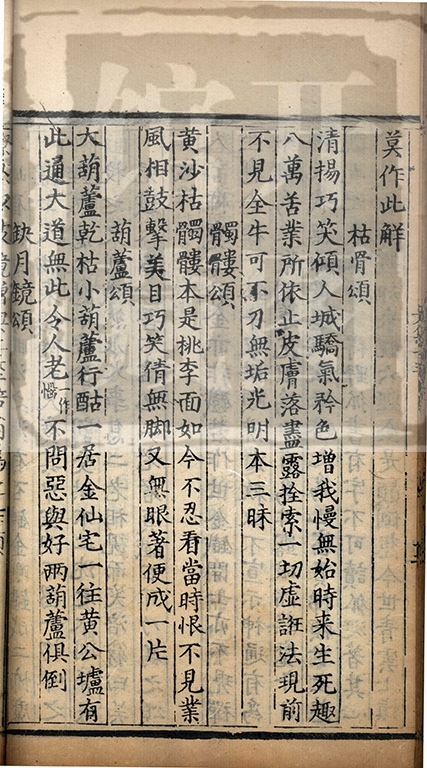 莫作此解
枯骨頌
清揚巧笑傾人城驕氣矜色增我慢無始時来生死趣
八萬苦業所依止皮膚落盡露拴索一切虛誑法現前
不見全牛可下刃無垢光明本三昧
髑髏頌
黄沙枯髑髏本是桃李面如今不忍看當時恨不見業
風相鼓擊美目巧笑倩無脚又無眼著便成一片
葫蘆頌
大葫蘆乾枯小葫蘆行酤一居金仙宅一往黄公壚有
此通大道無此令人老一作惱不問惡與好兩葫蘆俱倒
缺月鏡頌